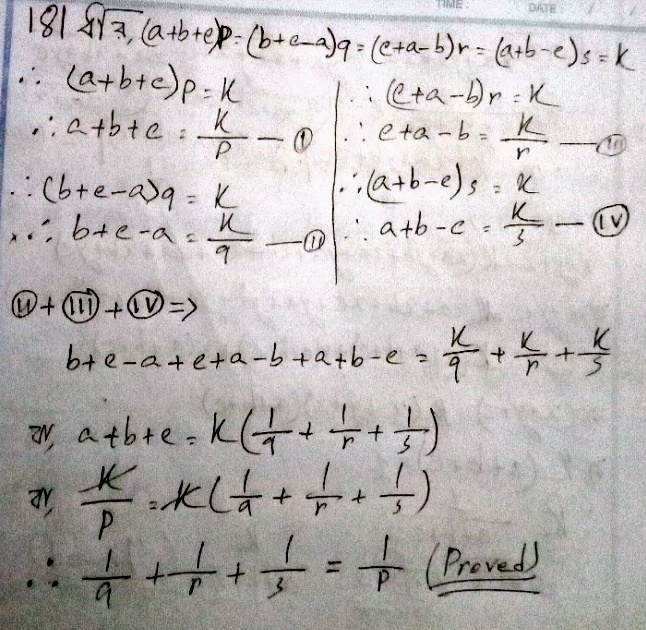 TIME : DATE : / /
18। ধরি, (a+b+c)p = (b+c-a)q = (c+a-b)r = (a+b-c)s = K
∴ (a+b+c)p = K
∴ a+b+c = K/p — (I)
∴ (b+c-a)q = K
∴ b+c-a = K/q — (II)
∴ (c+a-b)r = K
∴ c+a-b = K/r — (III)
∴ (a+b-c)s = K
∴ a+b-c = K/s — (IV)
(II) + (III) + (IV) =>
b+c-a+c+a-b+a+b-c = K/q + K/r + K/s
বা, a+b+c = K(1/q + 1/r + 1/s)
বা, K/p = K(1/q + 1/r + 1/s)
∴ 1/q + 1/r + 1/s = 1/p (Proved)